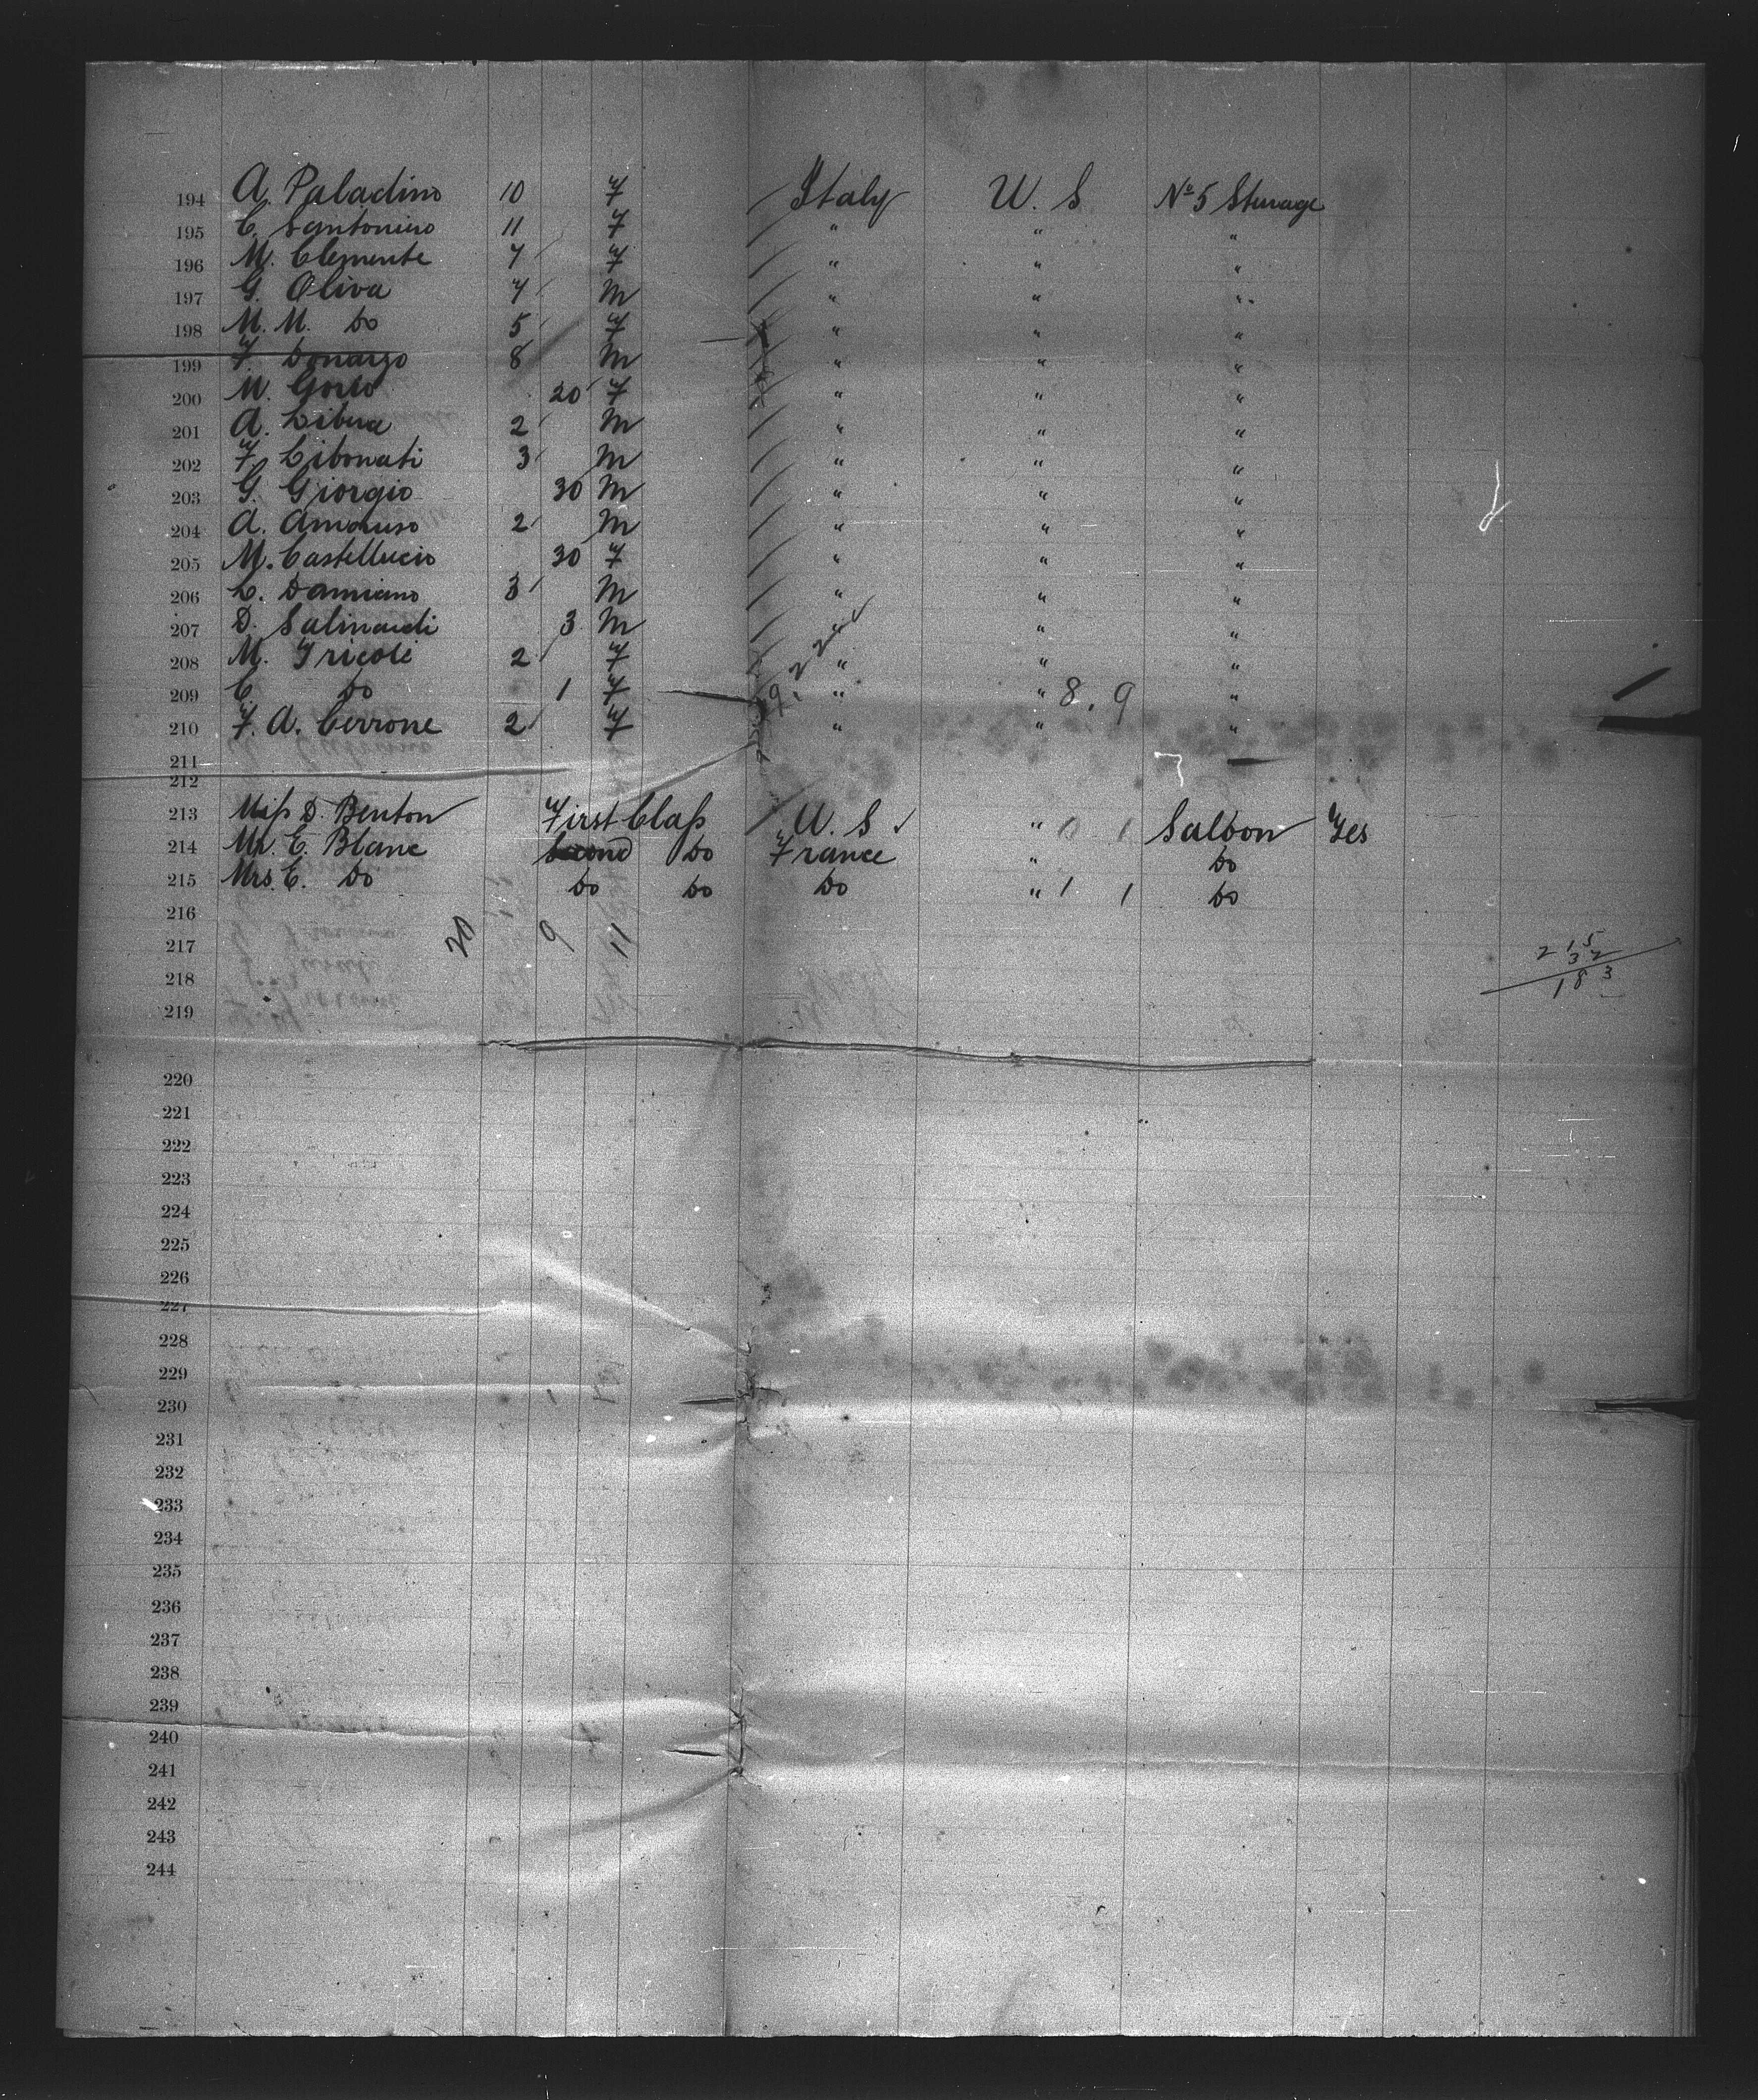 194 A. Paladino 10 F Italy U. S N⁰ 5 Sturage
195 C. Santoniero 11 F " " "
196 M. Clemente 7 F " " "
197 G. Oliva 7 M " " "
198 M. M. Do 5 F " " "
199 F. Donarzo 8 M " " "
200 M. 20 F " " "
201 A. Libera 2 M " " "
202 F. Cibonati 3 M " " "
203 G. Giorgio 30 M " " "
204 A. Amoruso 2 M " " "
205 M. Castelluccio 30 F " " "
206 L. Damiano 3 M " " "
207 D. Salinardi 3 M " " "
208 M. Tricoli 2 F " " "
209 C Do 1 F " " 8. 9 "
210 F. A. Cerrone 2 F " " "
211
212
213 Miss D. Benton First Class U. S " 0 1 Saloon Yes
214 Mr. E. Blanc Second Do France " Do
215 Mrs. E. Do Do Do Do " 1 1 Do
216
217 20 9 11 215
218 32
219 183
220
221
222
223
224
225
226
227
228
229
230
231
232
233
234
235
236
237
238
239
240
241
242
243
244